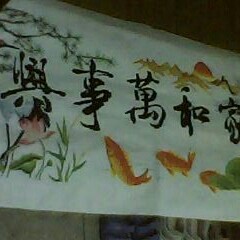 家和萬事興